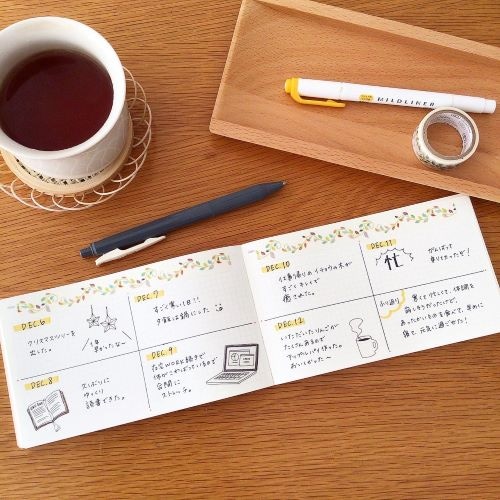 MILDLINER
DEC.6
クリスマスツリーを
出した。
1年
早かったな〜
DEC.7
すごく寒い1日!!
夕飯は鍋にした
DEC.8
久しぶりに
ゆっくり
読書できた。
DEC.9
在宅WORK続きで
体がこわばっているので
合間に
ストレッチ。
DEC.10
仕事帰りのイチョウの木が
すごくキレイで
癒された。
DEC.11
仕
がんばって
乗りきったぞ!
DEC.12
いただいたりんごが
たくさんあるので
アップルパイ作った。
おいしかった〜
ふり返り
寒くて忙しくて、体調を
崩しそうだったけど、
あったかいものを食べて、早めに
寝て、元気に過ごせた!